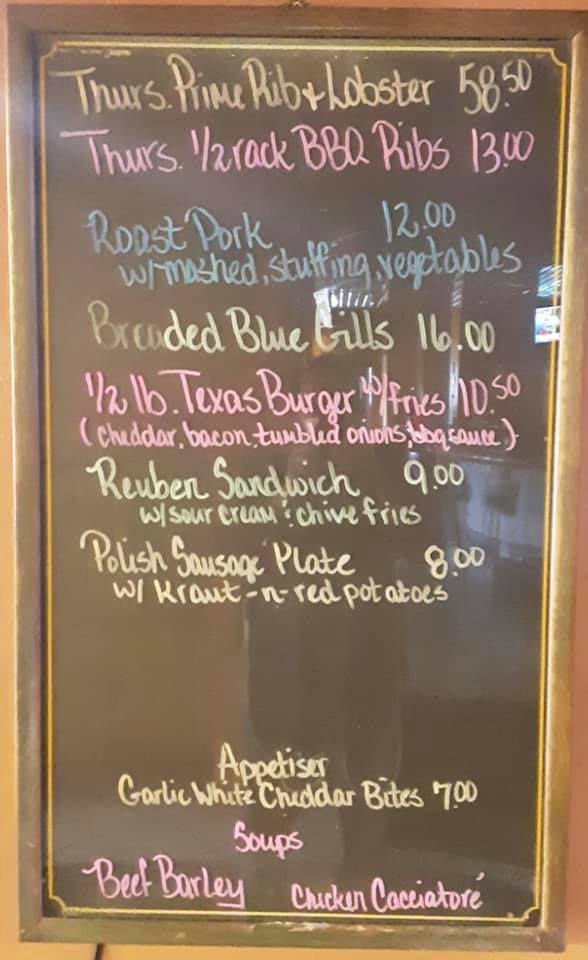 Thurs. Prime Rib & Lobster 58.50
Thurs. 1/2 rack BBQ Ribs 13.00
Roast Pork 12.00
w/ mashed, stuffing, vegetables
Breaded Blue Gills 16.00
1/2 lb. Texas Burger w/fries 10.50
(cheddar, bacon, tumbled onions, bbq sauce)
Reuben Sandwich 9.00
w/ sour cream & chive fries
Polish Sausage Plate 8.00
w/ Kraut-n-red potatoes
Appetiser
Garlic White Cheddar Bites 7.00
Soups
Beef Barley Chicken Cacciatoré